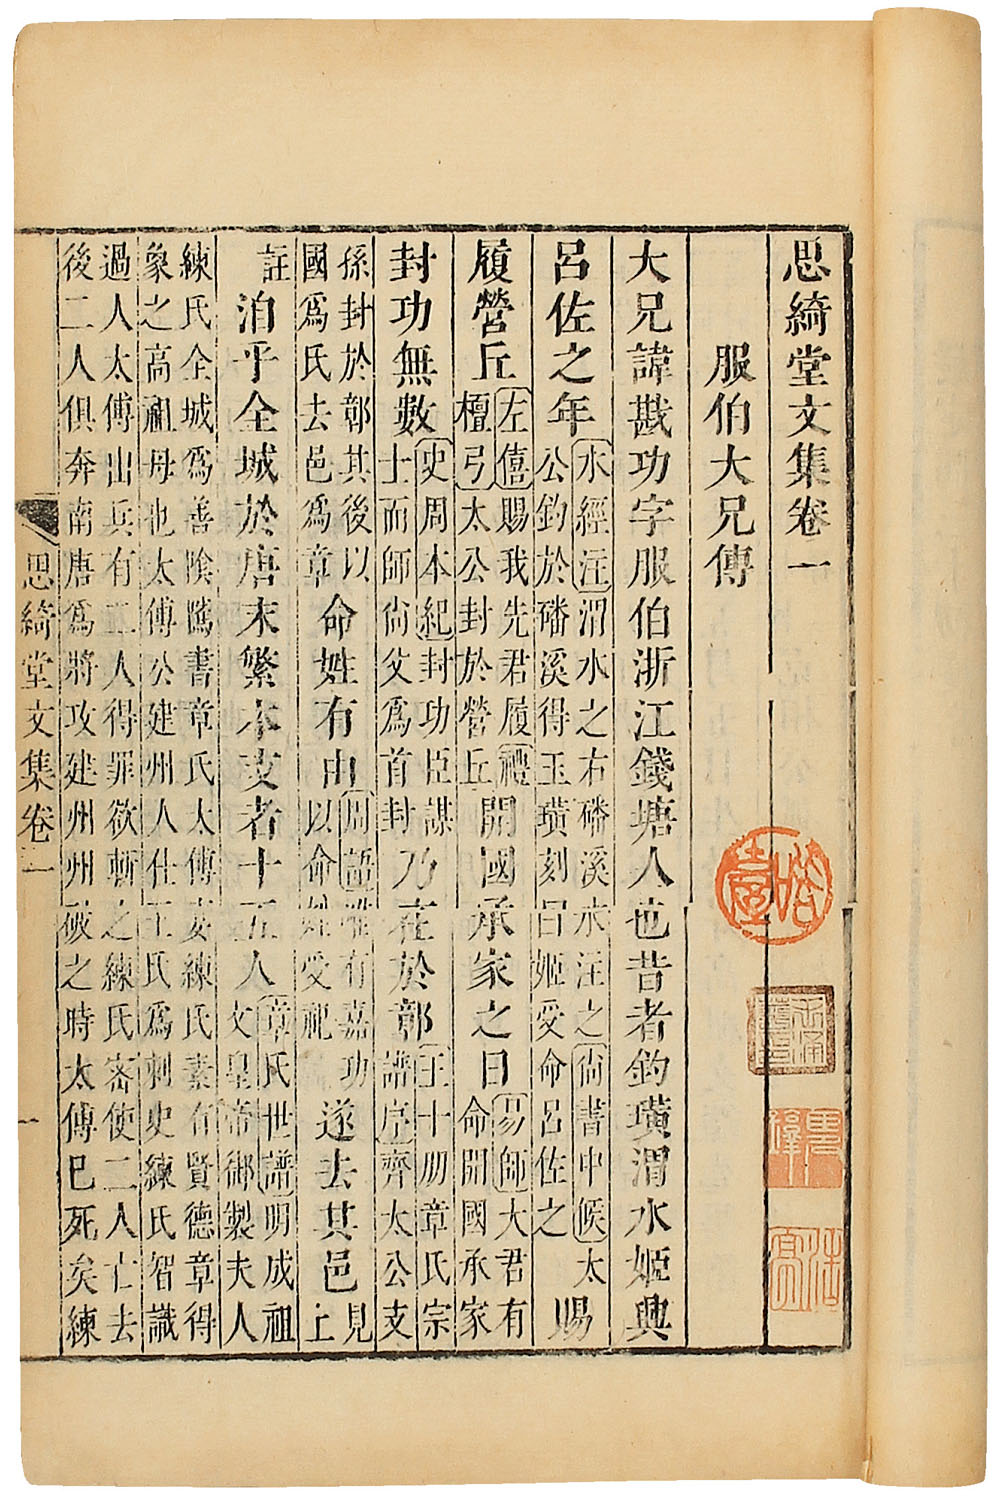 思綺堂文集卷一
服伯大兄傳
大兄諱戡功字服伯浙江錢塘人也昔者釣璜渭水姬興
呂佐之年水經注渭水之右磻溪水注之尚書中候太公釣於磻溪得玉璜刻曰姬受命呂佐之賜
履營丘左僖賜我先君履禮檀弓太公封於營丘開國承家之日易師大君有命開國承家
封功無數史周本紀封功臣謀士而師尙父爲首封乃在於鄣王十朋章氏宗譜序齊太公支
孫封於鄣其後以國爲氏去邑爲章命姓有由周語惟有嘉功以命姓受祀遂去其邑見上
註洎乎全城於唐末繁本支者十五人章氏世譜明成祖文皇帝御製夫人
練氏全城爲善陰隲書章氏太傅妻練氏素有賢德章得象之高祖母也太傅公建州人仕王氏爲刺史練氏智識
過人太傅出兵有二人得罪欲斬之練氏密使二人亡去後二人俱奔南唐爲將攻建州州破之時太傅巳死矣練
思綺堂文集卷一
一